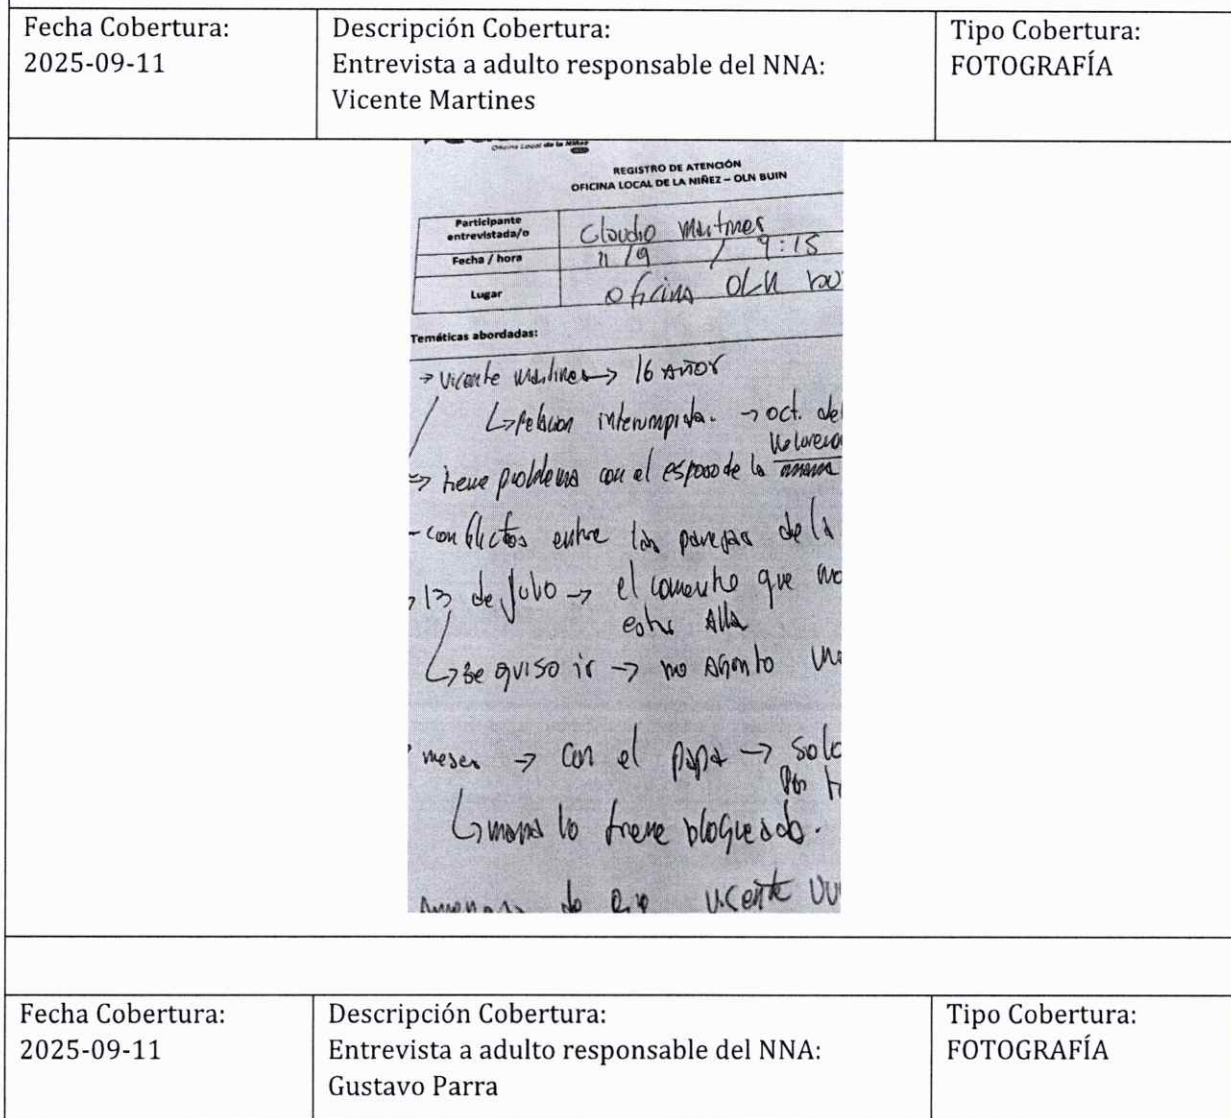 Fecha Cobertura:
2025-09-11
Descripción Cobertura:
Entrevista a adulto responsable del NNA:
Vicente Martines
Tipo Cobertura:
FOTOGRAFÍA
Oficina Local de la Niñez
REGISTRO DE ATENCIÓN
OFICINA LOCAL DE LA NIÑEZ – OLN BUIN
Participante
entrevistada/o
Claudio Martines
Fecha / hora
11/9 / 9:15
Lugar
oficina OLN
Temáticas abordadas:
→ Vicente Martines → 16 años
↳ relacion interrumpida. → oct. de
⇒ tiene problema con el esposo de la
- conflictos entre las parejas de la
13 de Julio → el comento que
estar Allá
↳ se quiso ir → no
meses → con el papa → solo
↳ mama lo tiene bloqueado.
Vicente
Fecha Cobertura:
2025-09-11
Descripción Cobertura:
Entrevista a adulto responsable del NNA:
Gustavo Parra
Tipo Cobertura:
FOTOGRAFÍA